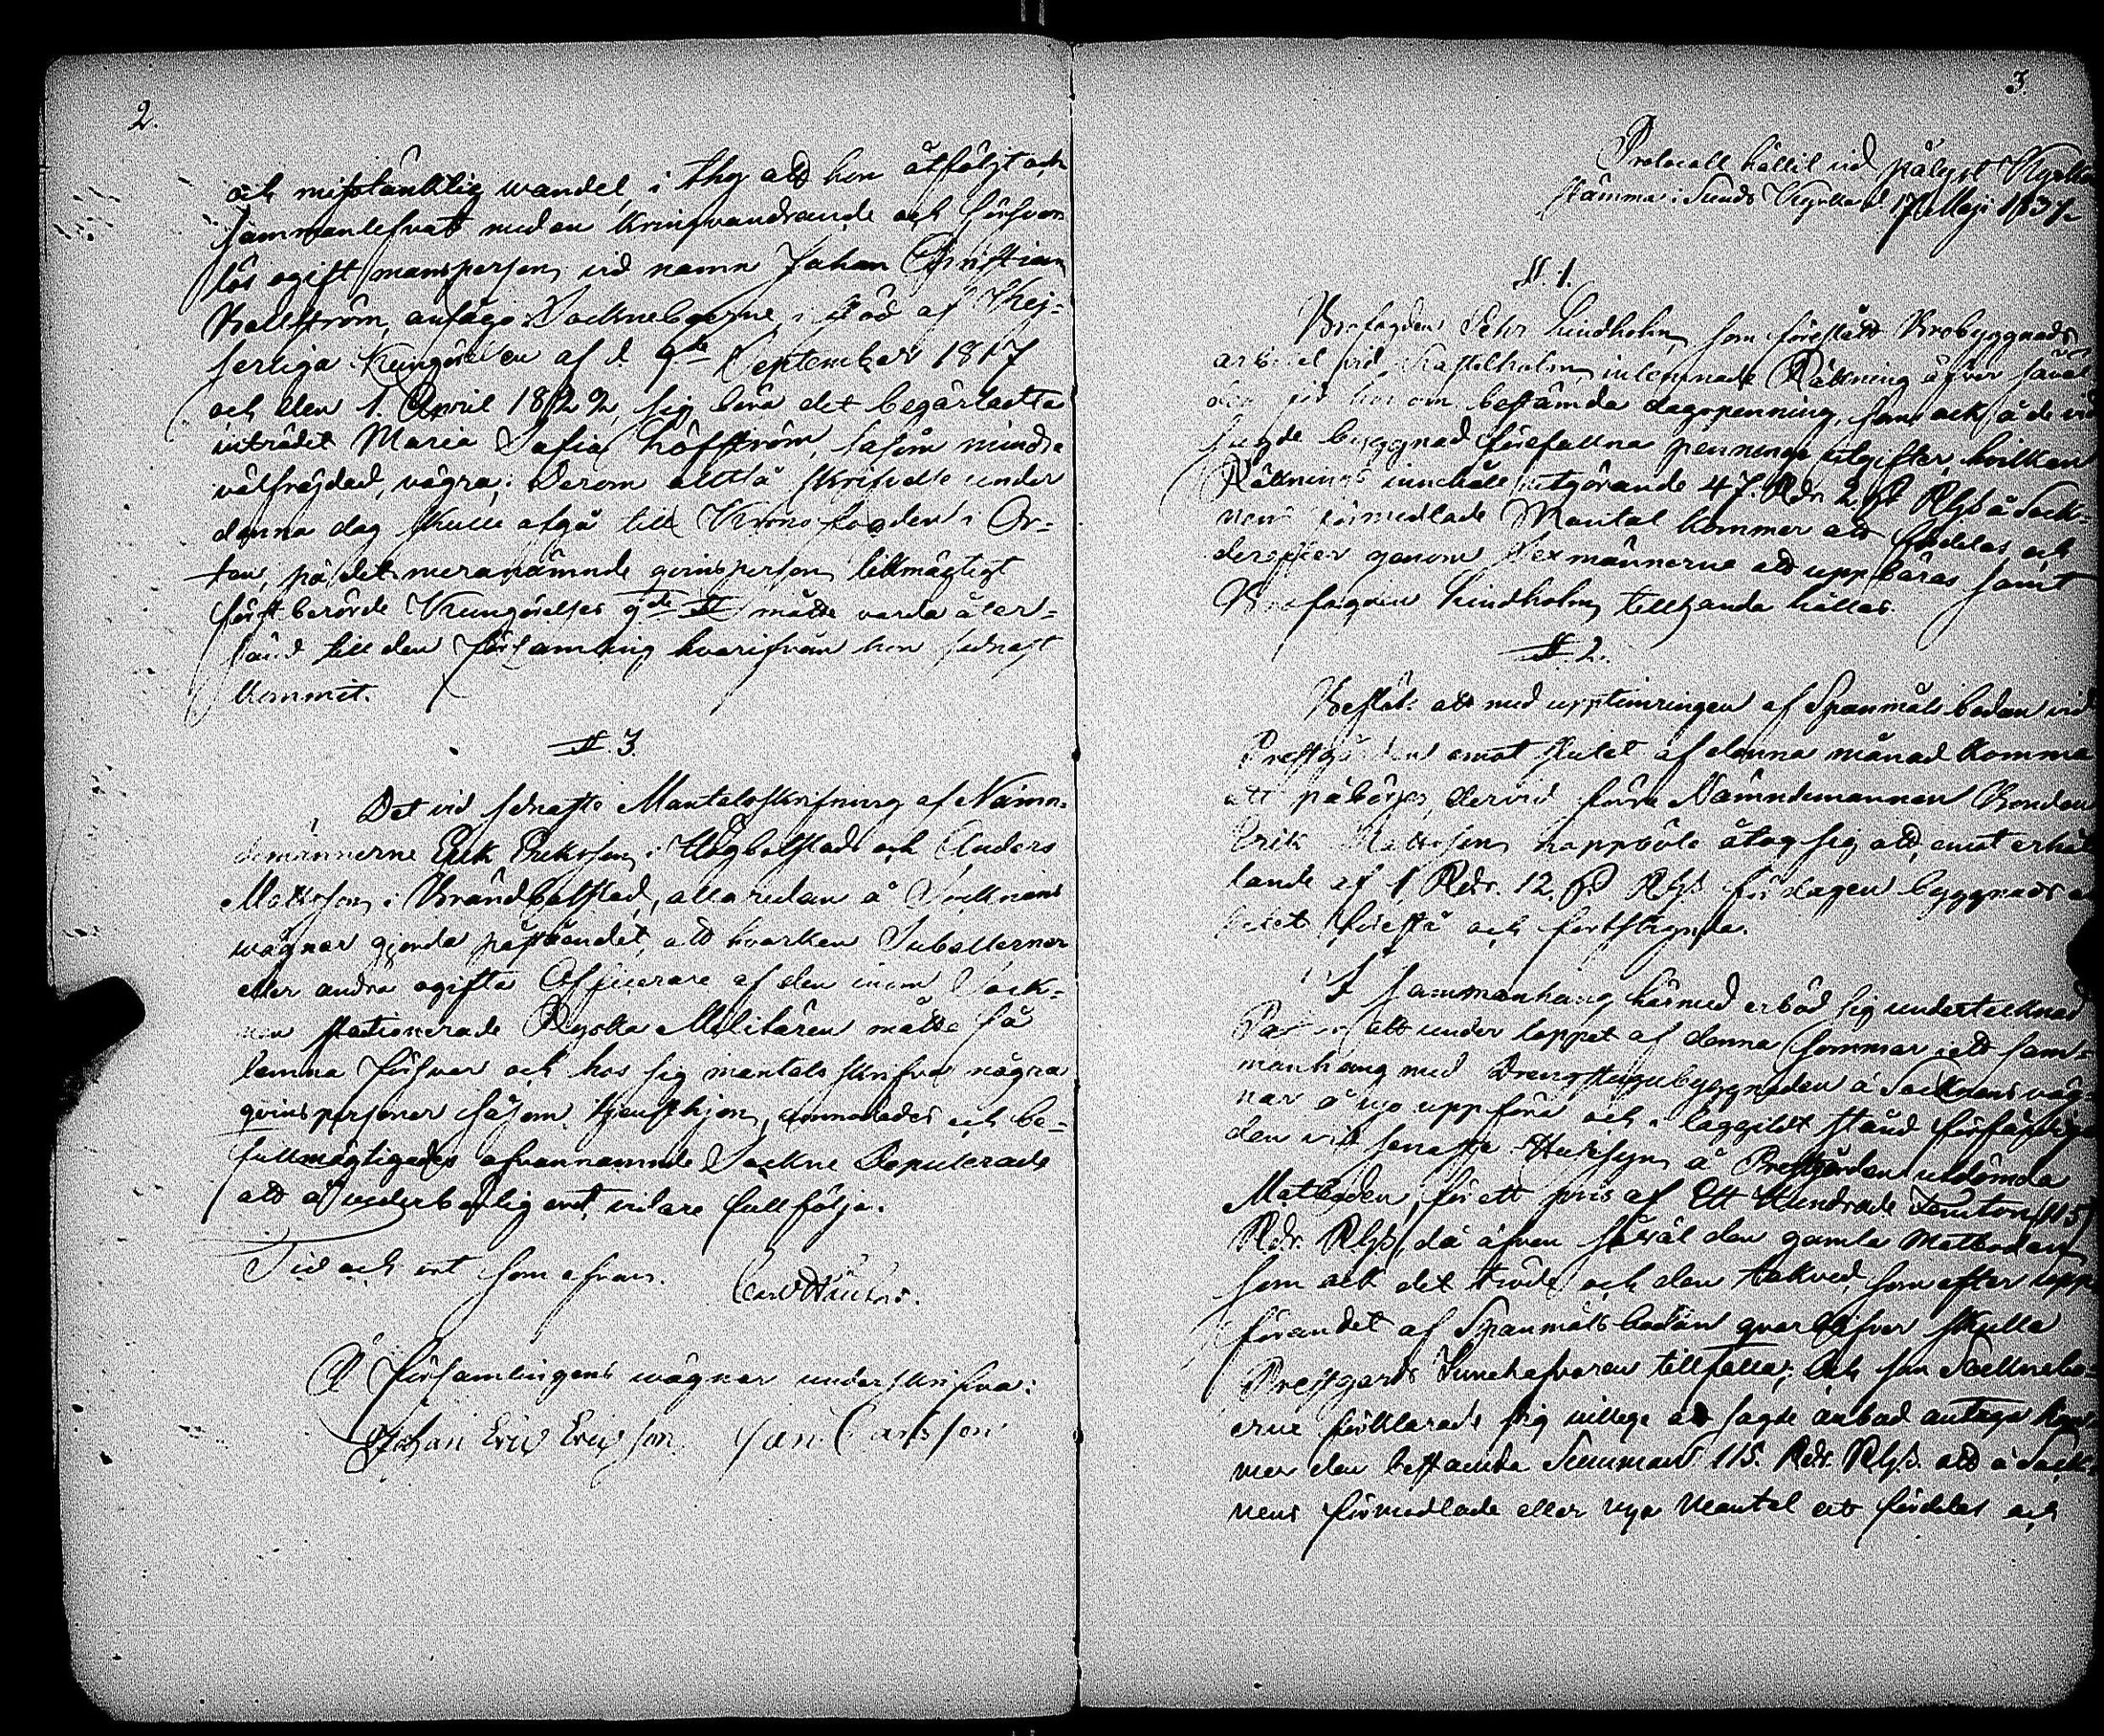 2.
och misstänktlig wandel, i thy att hon åtföljt och
sammanlefvat med en kringvandrande och försvars
lös ogift mansperson vid namn Johan Christian
Kallström, ansågo Sockneboerne, i stöd af Kej-
serliga Kungörelsen af d. 9de September 1817
och den 1. April 1822, sig böra det begärta
inträdet Maria Sofia Höffström, såsom mindre
välfräjdad, vägra; Derom alltså skrifvelse under
denna dag skulle afgå till Kronofogden i Or-
ten, på det meranämnde qvinsperson likmägtigt
först berörde Kungörelses 9de § måtte varda åter-
sänd till den Församling hvarifrån hon sednast
kommit.
§. 3.
Det vid sednaste Mantalsskrifning af Nämn-
demännerne Erik Eriksson i Högbolstad och Anders
Mattsson i Brändbolstad, allaredan å Socknens
wägnar gjorda påståendet, att hvarken Subalterner
eller andra ogifta Officerare af den inom Sock-
nen stationerade Ryska Militären måtte få
lemna försvar och hos sig mantals skrifva några
qvinspersoner såsom tjensthjon, och be-
fullmägtigades ofvannämnde Sockne Deputerade
att å vederbörlig ort vidare fullfölja.
Tid och ort som ofvan.
Carl
Å Församlingens wägnar underskrifva:
Johan Eric Ericsson Jan Carlsson
3.
Protocoll hållit vid pålyst Kyrko
stämma i Sunds Kyrka d. 17 Maji 1837.
§. 1.
Brofogden Pehr Lindholm, som förestått Brobyggnads
arbetet vid Kastelholm, inlemnade Räkning öfver såväl
den för honom bestämda dagspenning, som ock å de vid
sagde byggnad förefallna penninge utgifter, hvilken
Räknings innehåll utgörande 47. Rdr 2. ß Rgs å Sock-
nens förmedlade Mantal kommer att fördelas och
derefter genom Sexmännerne att uppbäras samt
Brofogden Lindholm tillhanda hållas.
§. 2.
Beslöts att med upptimringen af Spanmåls boden vid
Prestgården emot slutet af denna månad komma
att påbörjas, dervid förre Nämndemannen Bonden
Erik Mattsson åtog sig att, emot erhål
lande af 1 Rdr. 12. ß Rgs. för dagen byggnads ar
betet förestå och fortskynda.
I sammanhang härmed erböd sig undertecknad
Pastor att under loppet af denna sommar i ett sam-
manhang med Drengstugubyggnaden å Socknens väg-
nar å nyo uppföra och i laggildt stånd författiga
den vid senaste Husesyn å Prestgården utdömda
Matboden, för ett pris af Ett Hundrade Femton (115)
Rdr. Rgs, då äfven såväl den gamla Matboden
som ock det tröde och den takved, som efter upp
förandet af Spanmåls boden qvarblifver skulle
Prestgårds Innehafvaren tillfalla; Och som Socknebo-
erne förklarade sig willige att sagde anbud antaga kom-
mer den bestämda Summan 115. Rdr. Rgs. att å Sock-
nens förmedlade eller nya Mantal att fördelas och